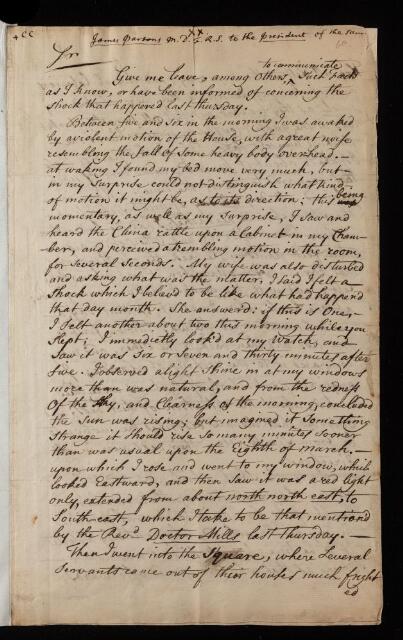 XX
James Parsons M.D. & R.S. to the president of the same
Sr
to communicate
Give me leave, among Others, Such Facts
as I know, or have been informed of concerning the
Shock that happened last thursday.
Between five and Six in the morning I was awaked
by a violent motion of the House, with a great noise
resembling the fall of Some heavy body overhead.—
at waking I found my bed move very much, but
in my Surprise could not distinguish what kind
of motion it might be, as to its direction; this being
momentary, as well as my Surprise, I Saw and
heard the China rattle upon a Cabinet in my Cham-
ber, and perceived a trembling motion in the room,
for Several Seconds. My wife was also disturbed
and asking what was the matter, I Said I felt a
Shock which I believd to be like what had happend
that day month. She answerd: if this is One,
I felt another about two this morning while you
Slept; I immedietly look'd at my Watch, and
Saw it was Six or Seven and thirty minutes after
five. I observed a light Shine in at my windows
more than was natural, and from the redness
Of the Sky, and Clearness of the morning, concluded
the Sun was rising; but imagined it Something
Strange it should rise So many minutes Sooner
than was usual upon the Eighth of March,—
upon which I rose and went to my window, which
looked Eastward, and then Saw it was a red light
only, extended from about north north east, to
South-east, which I take to be that mentiond
by the Revd. Doctor Mills last thursday.—
Then I went into the Square, where Several
Servants came out of their houses much fright
ed